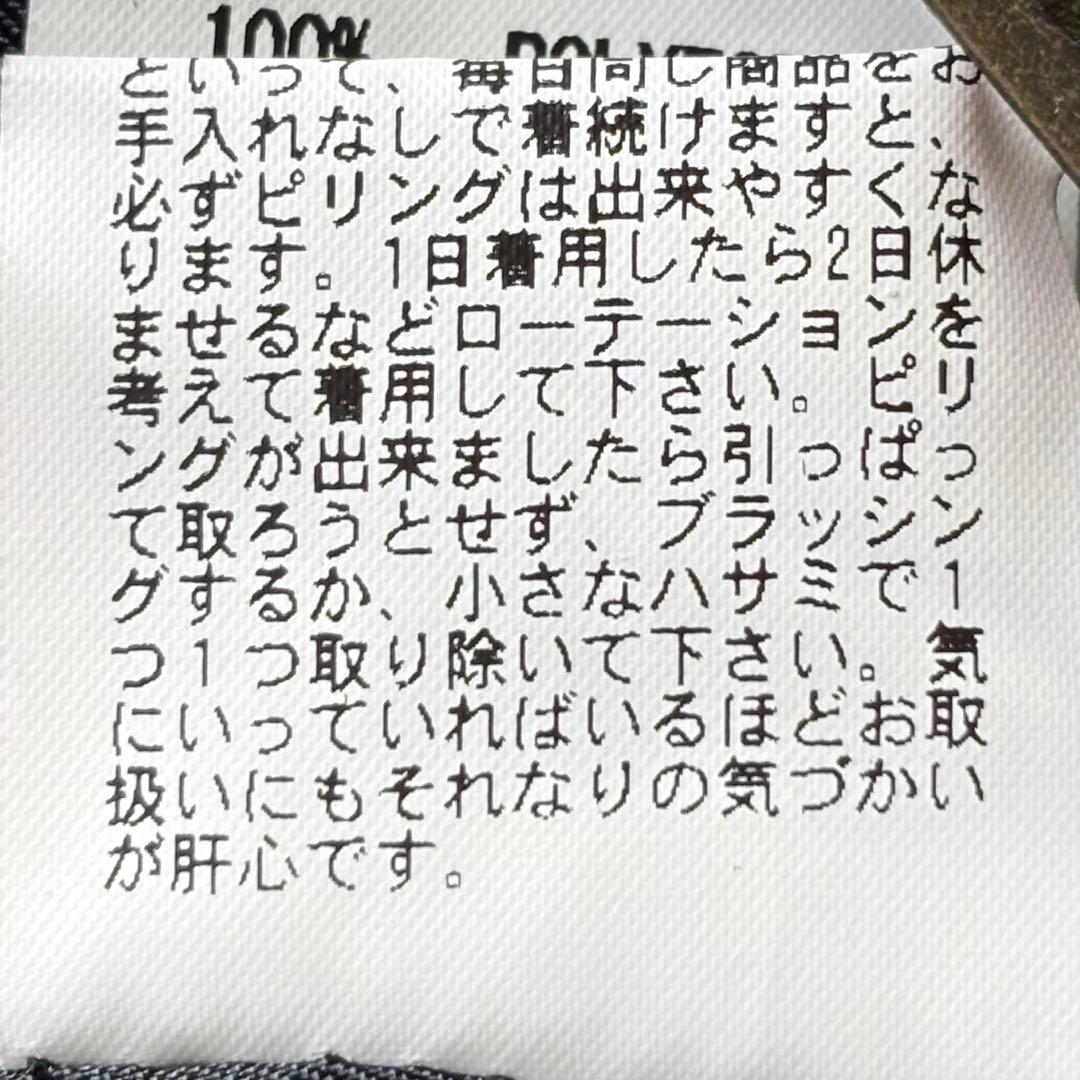 100%
といって、毎日同じ商品をお
手入れなしで着続けますと、
必ずピリングは出来やすくな
ります。1日着用したら2日休
ませるなどローテーションを
考えて着用して下さい。ピリ
ングが出来ましたら引っぱっ
て取ろうとせず、ブラッシン
グするか、小さなハサミで1
つ1つ取り除いて下さい。気
にいっていればいるほどお取
扱いにもそれなりの気づかい
が肝心です。